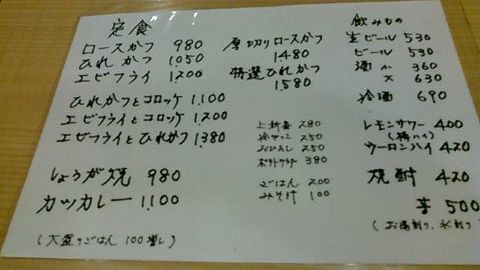 定食
ロースかつ 980
ひれかつ 1,050
エビフライ 1,200
ひれかつとコロッケ 1,100
エビフライとコロッケ 1,200
エビフライとひれかつ 1,380
しょうが焼 980
カツカレー 1,100
(大盛りごはん 100増し)
厚切りロースかつ
1480
特選ひれかつ
1,580
上新香 280
冷やっこ 250
おひたし 250
ポテトサラダ 380
ごはん 200
みそ汁 100
飲みもの
生ビール 530
ビール 530
酒 小 360
大 630
冷酒 690
レモンサワー 400
ウーロンハイ 420
焼酎 420
芋 500
(お湯割り、水割り)